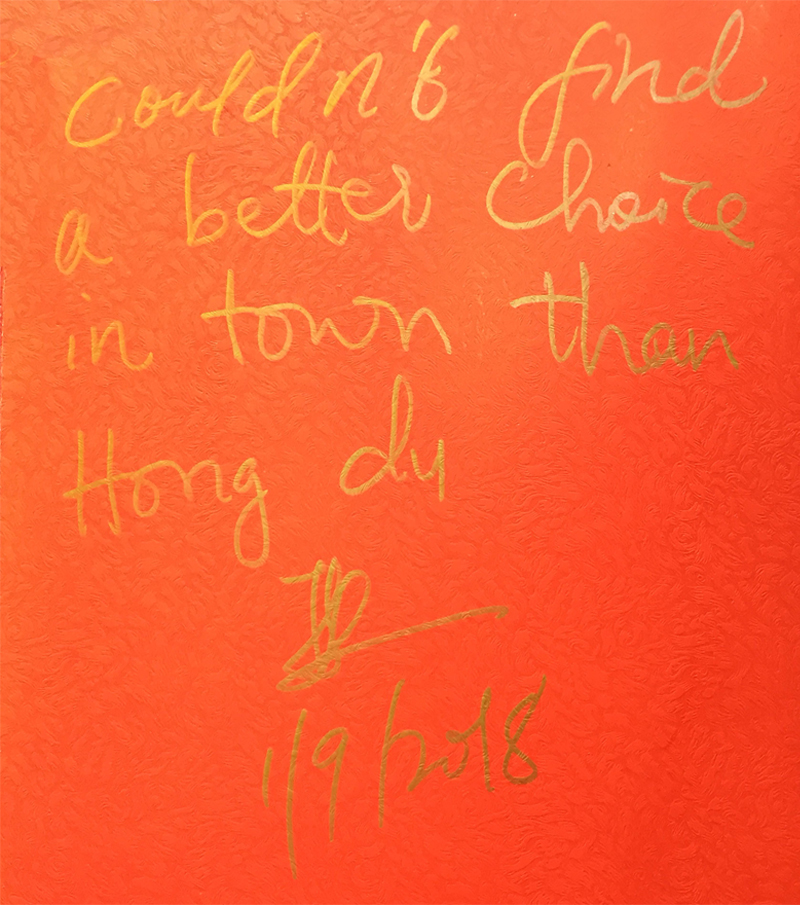 Couldn't find
a better choice
in town than
Hong du
1/9/2018